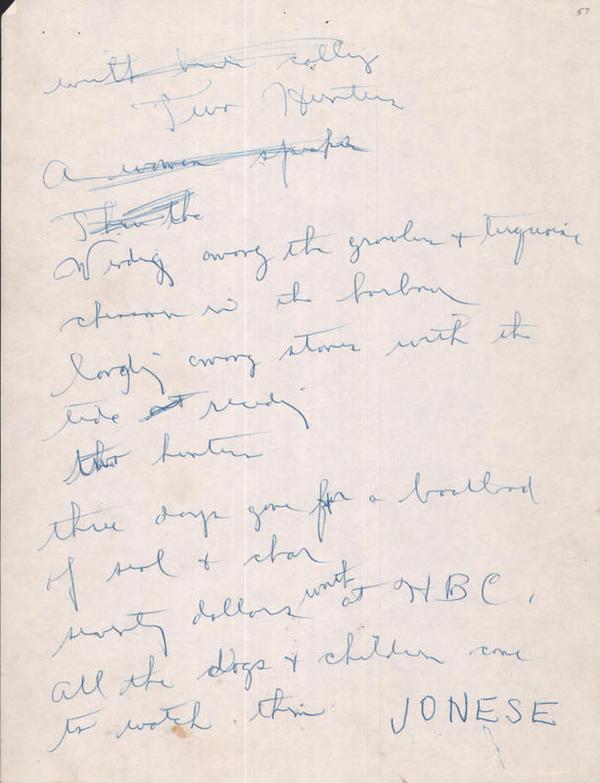 57
with her calling
Two Hunters
A woman speaks
Then the
Winding among the growlers + turquoise
chasms in the harbour
among stones with the
tide at receding
two hunters
three days gone for a boatload
of seal + char
seventy dollars worth at HBC,
all the dogs & children come
to watch them JONESE